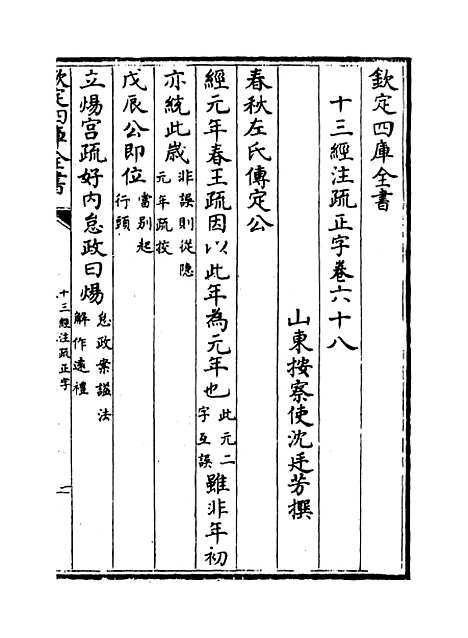 欽定四庫全書
十三經注疏正字卷六十八
山東按察使沈廷芳撰
春秋左氏傳定公
經元年春王疏因以此年為元年也此元二字互誤雖非年初
亦統此歳非誤則從隐元年疏挍
戊辰公即位當别起行頭
立煬宫疏好内怠政曰煬怠政案諡法解作逺禮
欽定四庫全書
十三經注疏正字